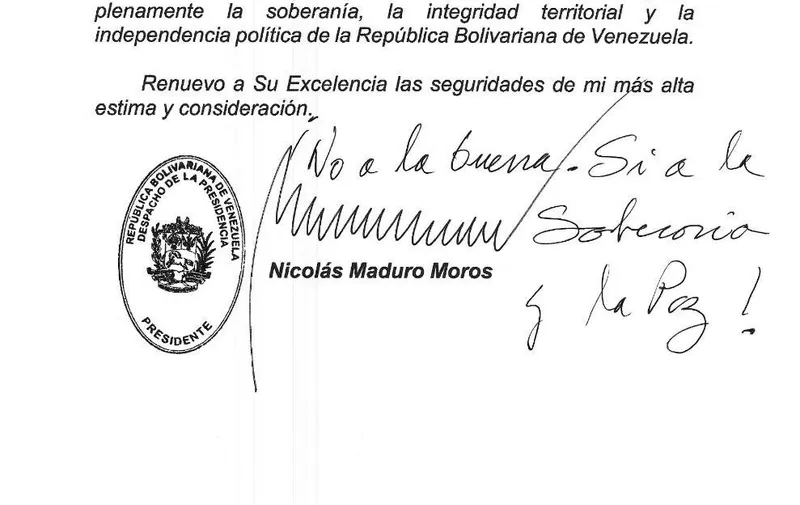 plenamente la soberanía, la integridad territorial y la
independencia política de la República Bolivariana de Venezuela.
Renuevo a Su Excelencia las seguridades de mi más alta
estima y consideración.
No a la Guerra. Si a la
Soberania
y la Paz!
REPÚBLICA BOLIVARIANA DE VENEZUELA
DESPACHO DE LA PRESIDENCIA
PRESIDENTE
Nicolás Maduro Moros